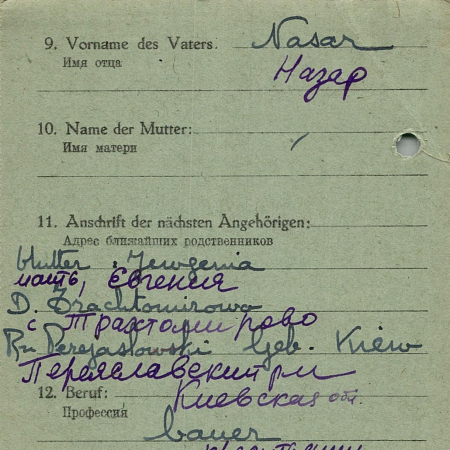 9. Vorname des Vaters. Nasar
Имя отца
Назар
10. Name der Mutter: /
Имя матери
11. Anschrift der nächsten Angehörigen:
Адрес ближайших родственников
Mutter, Jewgenia
мать, Евгения
D. Trachtomirowo
с Трахтомирово
Rn Perejaslowski Geb. Kiew
Переяславский р-н
12. Beruf: Киевская обл.
Профессия
bauer